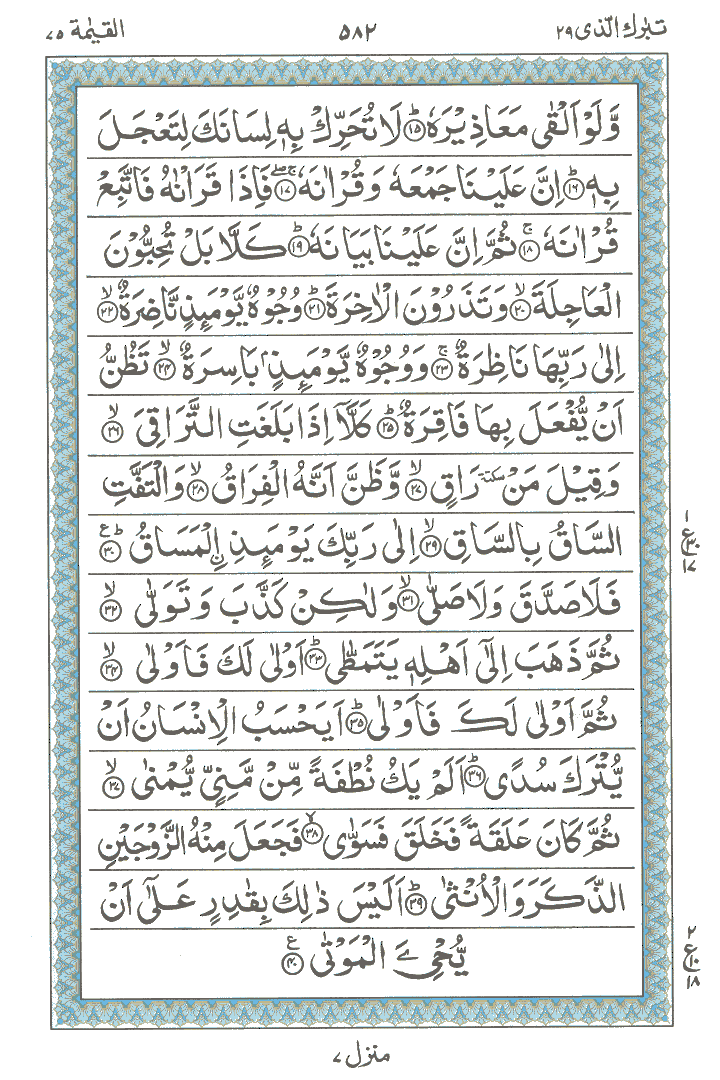 تبٰرك الّذی ۲۹
۵۸۲
القیٰمة ۷۵
وَّلَوْ اَلْقٰى مَعَاذِيْرَهٗؕ۝۱۵ لَا تُحَرِّكْ بِهٖ لِسَانَكَ لِتَعْجَلَ
بِهٖؕ۝۱۶ اِنَّ عَلَيْنَا جَمْعَهٗ وَقُرْاٰنَهٗۚۖ۝۱۷ فَاِذَا قَرَاْنٰهُ فَاتَّبِعْ
قُرْاٰنَهٗۚ۝۱۸ ثُمَّ اِنَّ عَلَيْنَا بَيَانَهٗؕ۝۱۹ كَلَّا بَلْ تُحِبُّوْنَ
الْعَاجِلَةَۙ۝۲۰ وَتَذَرُوْنَ الْاٰخِرَةَؕ۝۲۱ وُجُوْهٌ يَّوْمَىِٕذٍ نَّاضِرَةٌۙ۝۲۲
اِلٰى رَبِّهَا نَاظِرَةٌۚ۝۲۳ وَوُجُوْهٌ يَّوْمَىِٕذٍۭ بَاسِرَةٌۙ۝۲۴ تَظُنُّ
اَنْ يُّفْعَلَ بِهَا فَاقِرَةٌؕ۝۲۵ كَلَّاۤ اِذَا بَلَغَتِ التَّرَاقِيَۙ۝۲۶
وَقِيْلَ مَنْ سكتة رَاقٍۙ۝۲۷ وَّظَنَّ اَنَّهُ الْفِرَاقُۙ۝۲۸ وَالْتَفَّتِ
السَّاقُ بِالسَّاقِۙ۝۲۹ اِلٰى رَبِّكَ يَوْمَىِٕذِ اِ۟لْمَسَاقُؕ۝۳۰ ع
فَلَا صَدَّقَ وَلَا صَلّٰىۙ۝۳۱ وَلٰكِنْ كَذَّبَ وَتَوَلّٰىۙ۝۳۲
ثُمَّ ذَهَبَ اِلٰۤى اَهْلِهٖ يَتَمَطّٰىؕ۝۳۳ اَوْلٰى لَكَ فَاَوْلٰىۙ۝۳۴
ثُمَّ اَوْلٰى لَكَ فَاَوْلٰىؕ۝۳۵ اَيَحْسَبُ الْاِنْسَانُ اَنْ
يُّتْرَكَ سُدًىؕ۝۳۶ اَلَمْ يَكُ نُطْفَةً مِّنْ مَّنِيٍّ يُّمْنٰىۙ۝۳۷
ثُمَّ كَانَ عَلَقَةً فَخَلَقَ فَسَوّٰىۙ۝۳۸ فَجَعَلَ مِنْهُ الزَّوْجَيْنِ
الذَّكَرَ وَالْاُنْثٰىؕ۝۳۹ اَلَيْسَ ذٰلِكَ بِقٰدِرٍ عَلٰۤى اَنْ
يُّحْیِۦَ الْمَوْتٰى۝۴۰ ع
۱
ع ۳۰
۱۷
۲
ع ۱۰
۱۸
منزل ۷